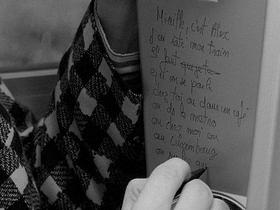 Mireille, c'est Alex
j'ai raté mon train
il faut
qu'on se parle
chez toi ou dans un café
ou de la métro
ou chez moi ou
au Luxembourg
ou